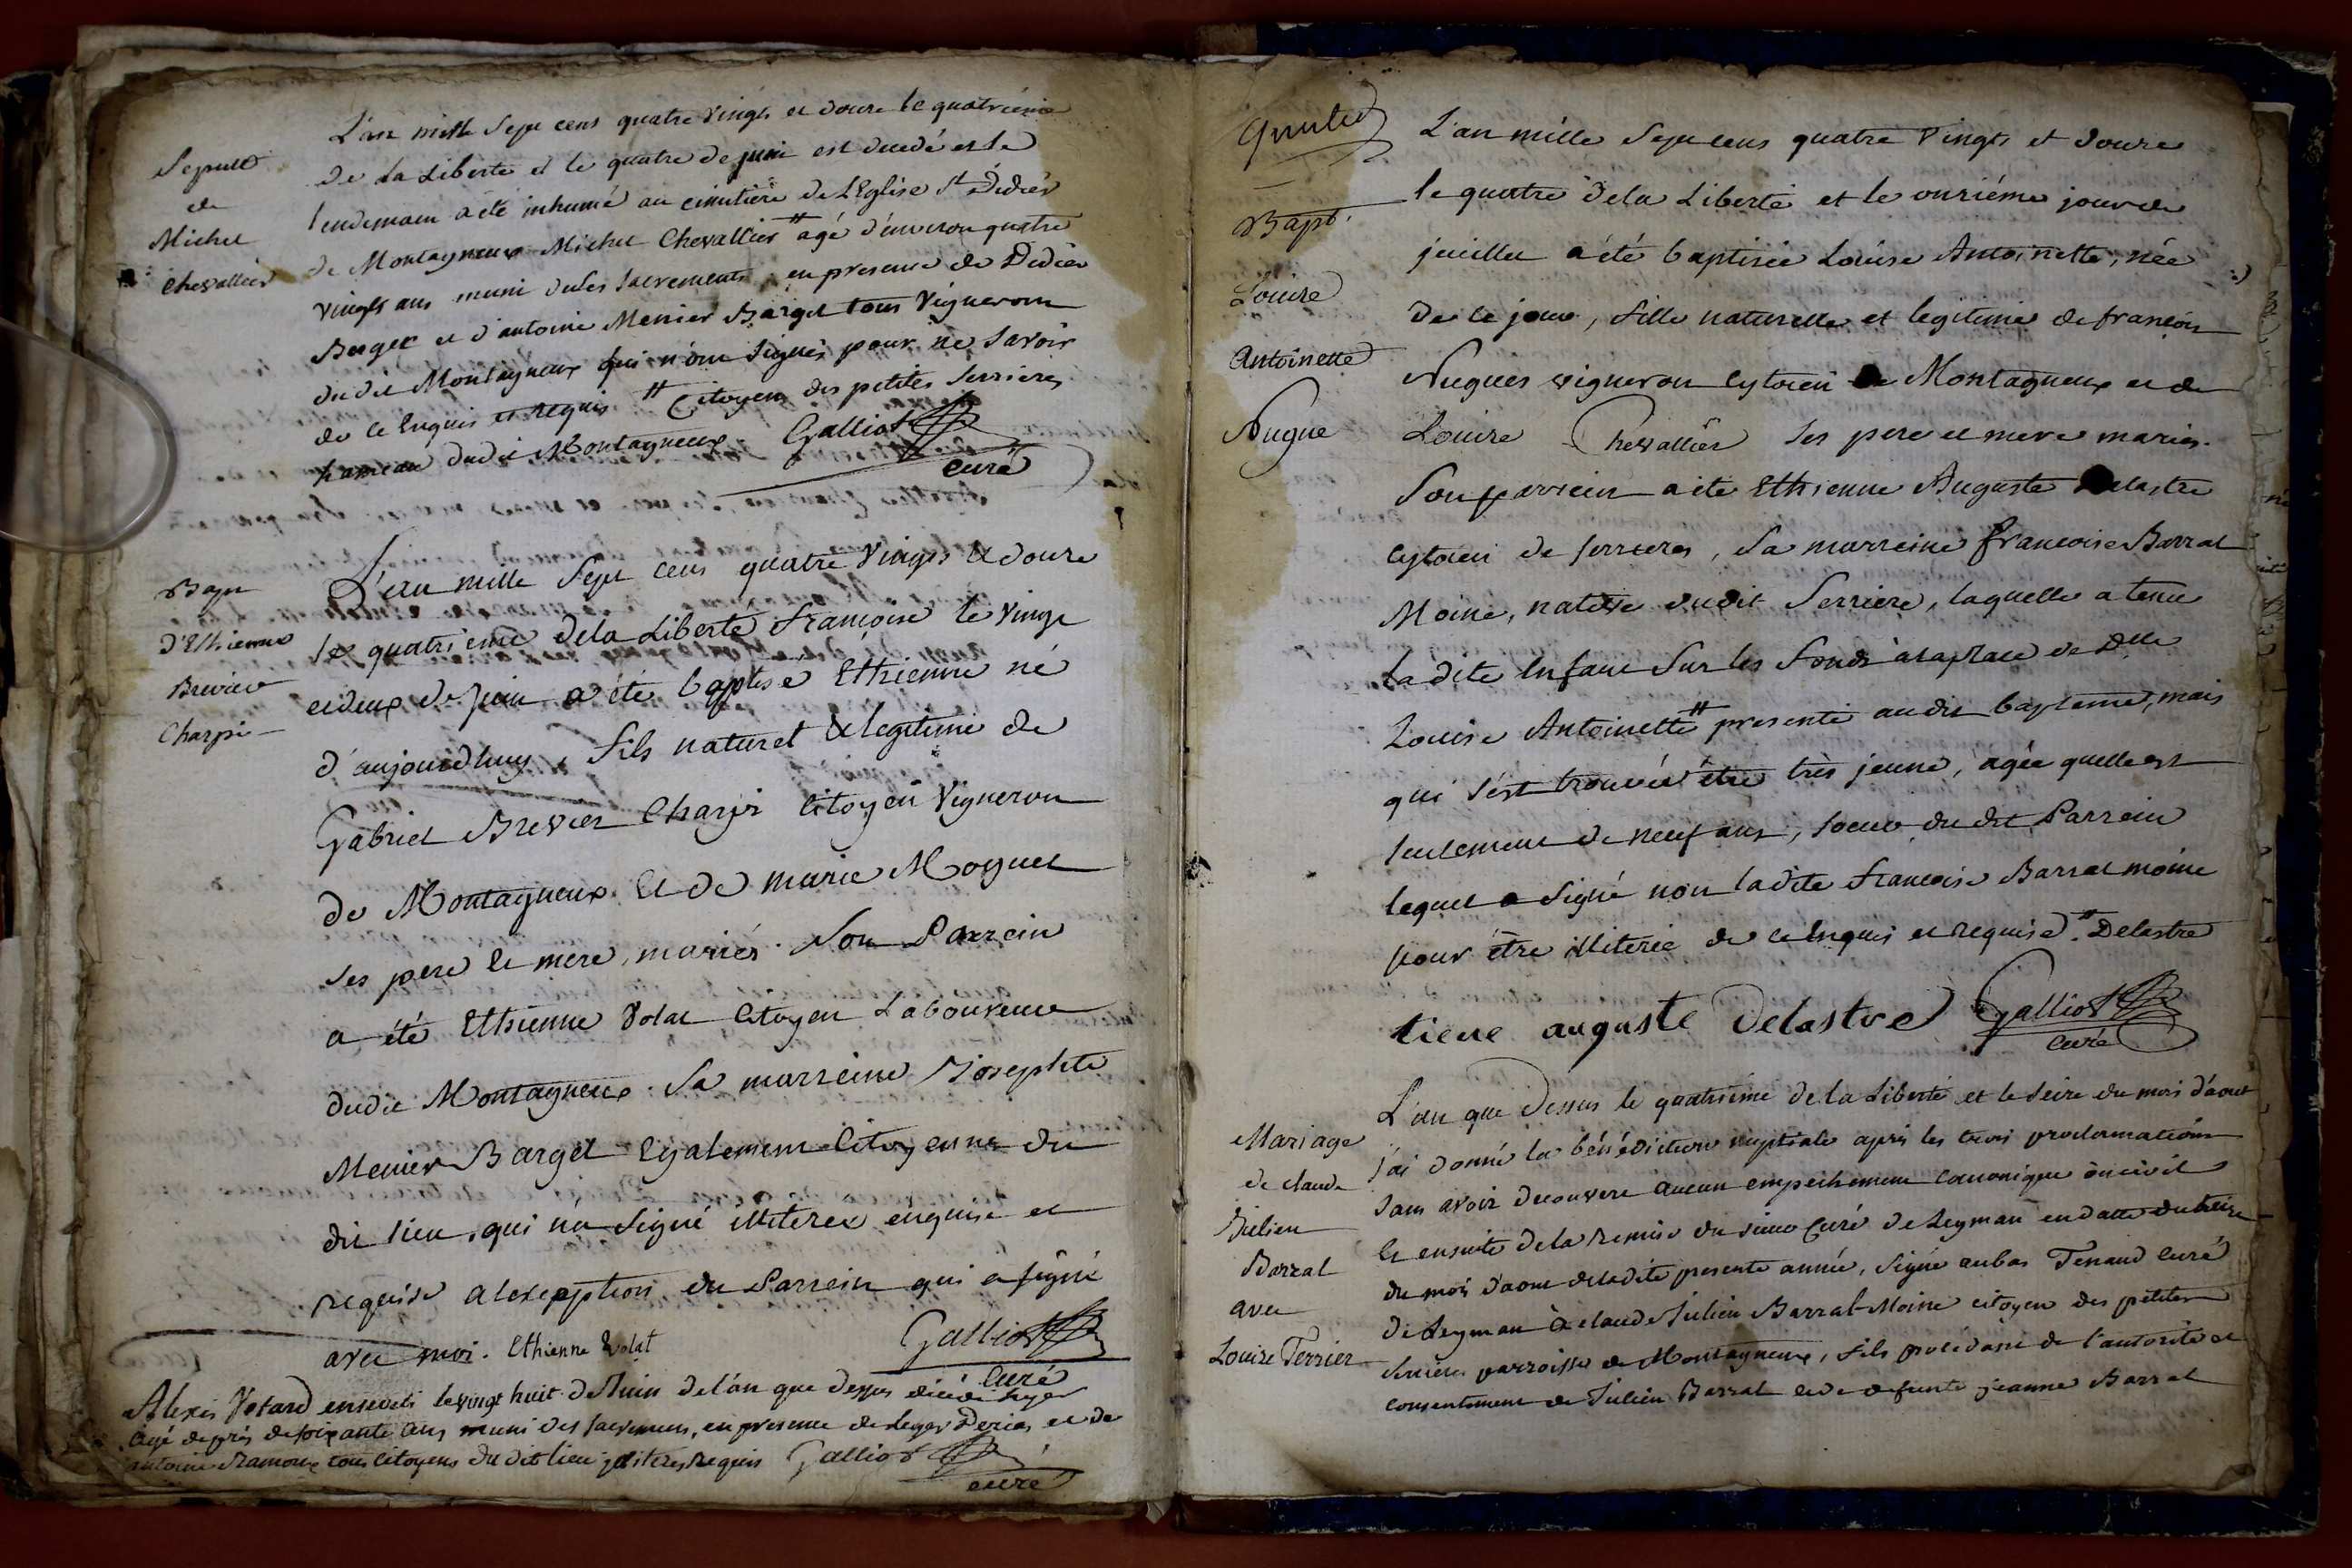 Sepult
de
Michel
chevallier
L'an mille sept cens quatre vingts et douze le quatriéme
de la Liberté et le quatre de juin est decedé et le
lendemain a été inhumé au cimitiére de L'Eglise St Didier
de Montagneux Michel Chevallier # âgé d'environ quatre
vingts ans muni de ses sacrements, en presence de Didier
Berger et d'antoine Menier Barget tous Vignerons
dudit Montagneux qui n'ont signés pour ne savoir
de ce Enquis et requis # Citoyen des petites Serrieres
hameau dudit Montagneux. Galliot
curé
Bapt
d'Ethienne
Brevier
Charpi
L'an mille sept cens quatre vingts et douze
le quatrieme de la Liberté françoise le vingt
et deux de juin a été baptisé Ethienne né
d'aujourdhuy, fils naturel et legitime de
Gabriel Brevier Charpi Citoyen Vigneron
de Montagneux et de marie Moguet
ses pere et mere, mariés. Son Parrein
a été Ethienne Volat Citoyen Laboureur
dudit Montagneux. Sa marreine Josephte
Menier Barget Egalement Citoyenne du
dit lieu, qui n'a signé illiterée enquise et
requise a lexception du Parrein qui a signé
avec moi. Ethienne Volat Galliot
Curé
Alexis enseveli le vingt huit de Juin de l'an que dessus
agé de près de soixante ans muni des sacremens, en presence de Leger et de
antoine Ramoux tous citoyens du dit lieu requis Galliot
curé
Bapt.
Louise
Antoinette
Nugue
L'an mille sept cens quatre vingts et douze
le quatre de la Liberté et le onziéme jour de
juillet a été baptisée Louise Antoinette, née
de ce jour, fille naturelle et legitime de françois
Nugues vigneron Cytoien de Montagneux et de
Louise Chevallier ses pere et mere mariés.
Son parrein a été Ethienne Auguste Delastre
cytoien de serrieres, sa marreine francoise Barral
Moine, native dudit Serriere, laquelle a tenu
ladite Enfant sur les fonds à la place de Dlle
Louise Antoinette # presente audit bapteme, mais
qui s'est trouvée être très jeune, agée quelle est
seulement de neuf ans, soeur du dit Parrein
lequel a signé non ladite francoise Barral moine
pour être illiterée de ce Enquis et requise. # Delastre
tiene auguste Delastre Galliot
Curé
Mariage
de claude
Julien
Barral
avec
Louise Terrier
L'an que dessus le quatrieme de la Liberté et le seize du mois d'aout
j'ai donné la bénédiction nuptiale après les trois proclamations
sans avoir decouvert aucun empechement canonique ou civil
et ensuite de la remise du sieur Curé de Leyman en datte du treize
du mois d'aout de ladite presente année, signé au bas Tenand curé
de Leyman à claude Julien Barral-Moine citoyen des petites
Serrieres parroisse de Montagneux, fils procedant de l'autorité et
consentement de Julien Barral et de defunte jeanne Barral